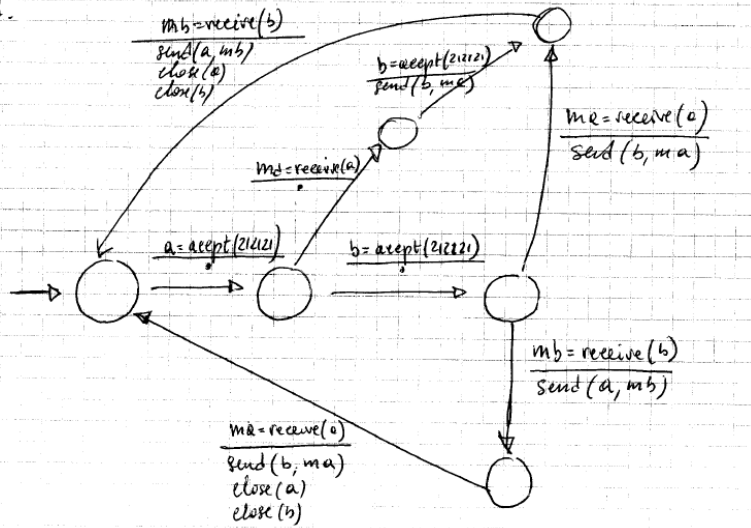 mb=receive(b)
send(a, mb)
close(a)
close(b)
b=accept(212121)
send(b, ma)
ma=receive(a)
send(b, ma)
ma=receive(a)
.
a=accept(212121)
.
b=accept(212121)
.
mb=receive(b)
send(a, mb)
ma=receive(a)
send(b, ma)
close(a)
close(b)